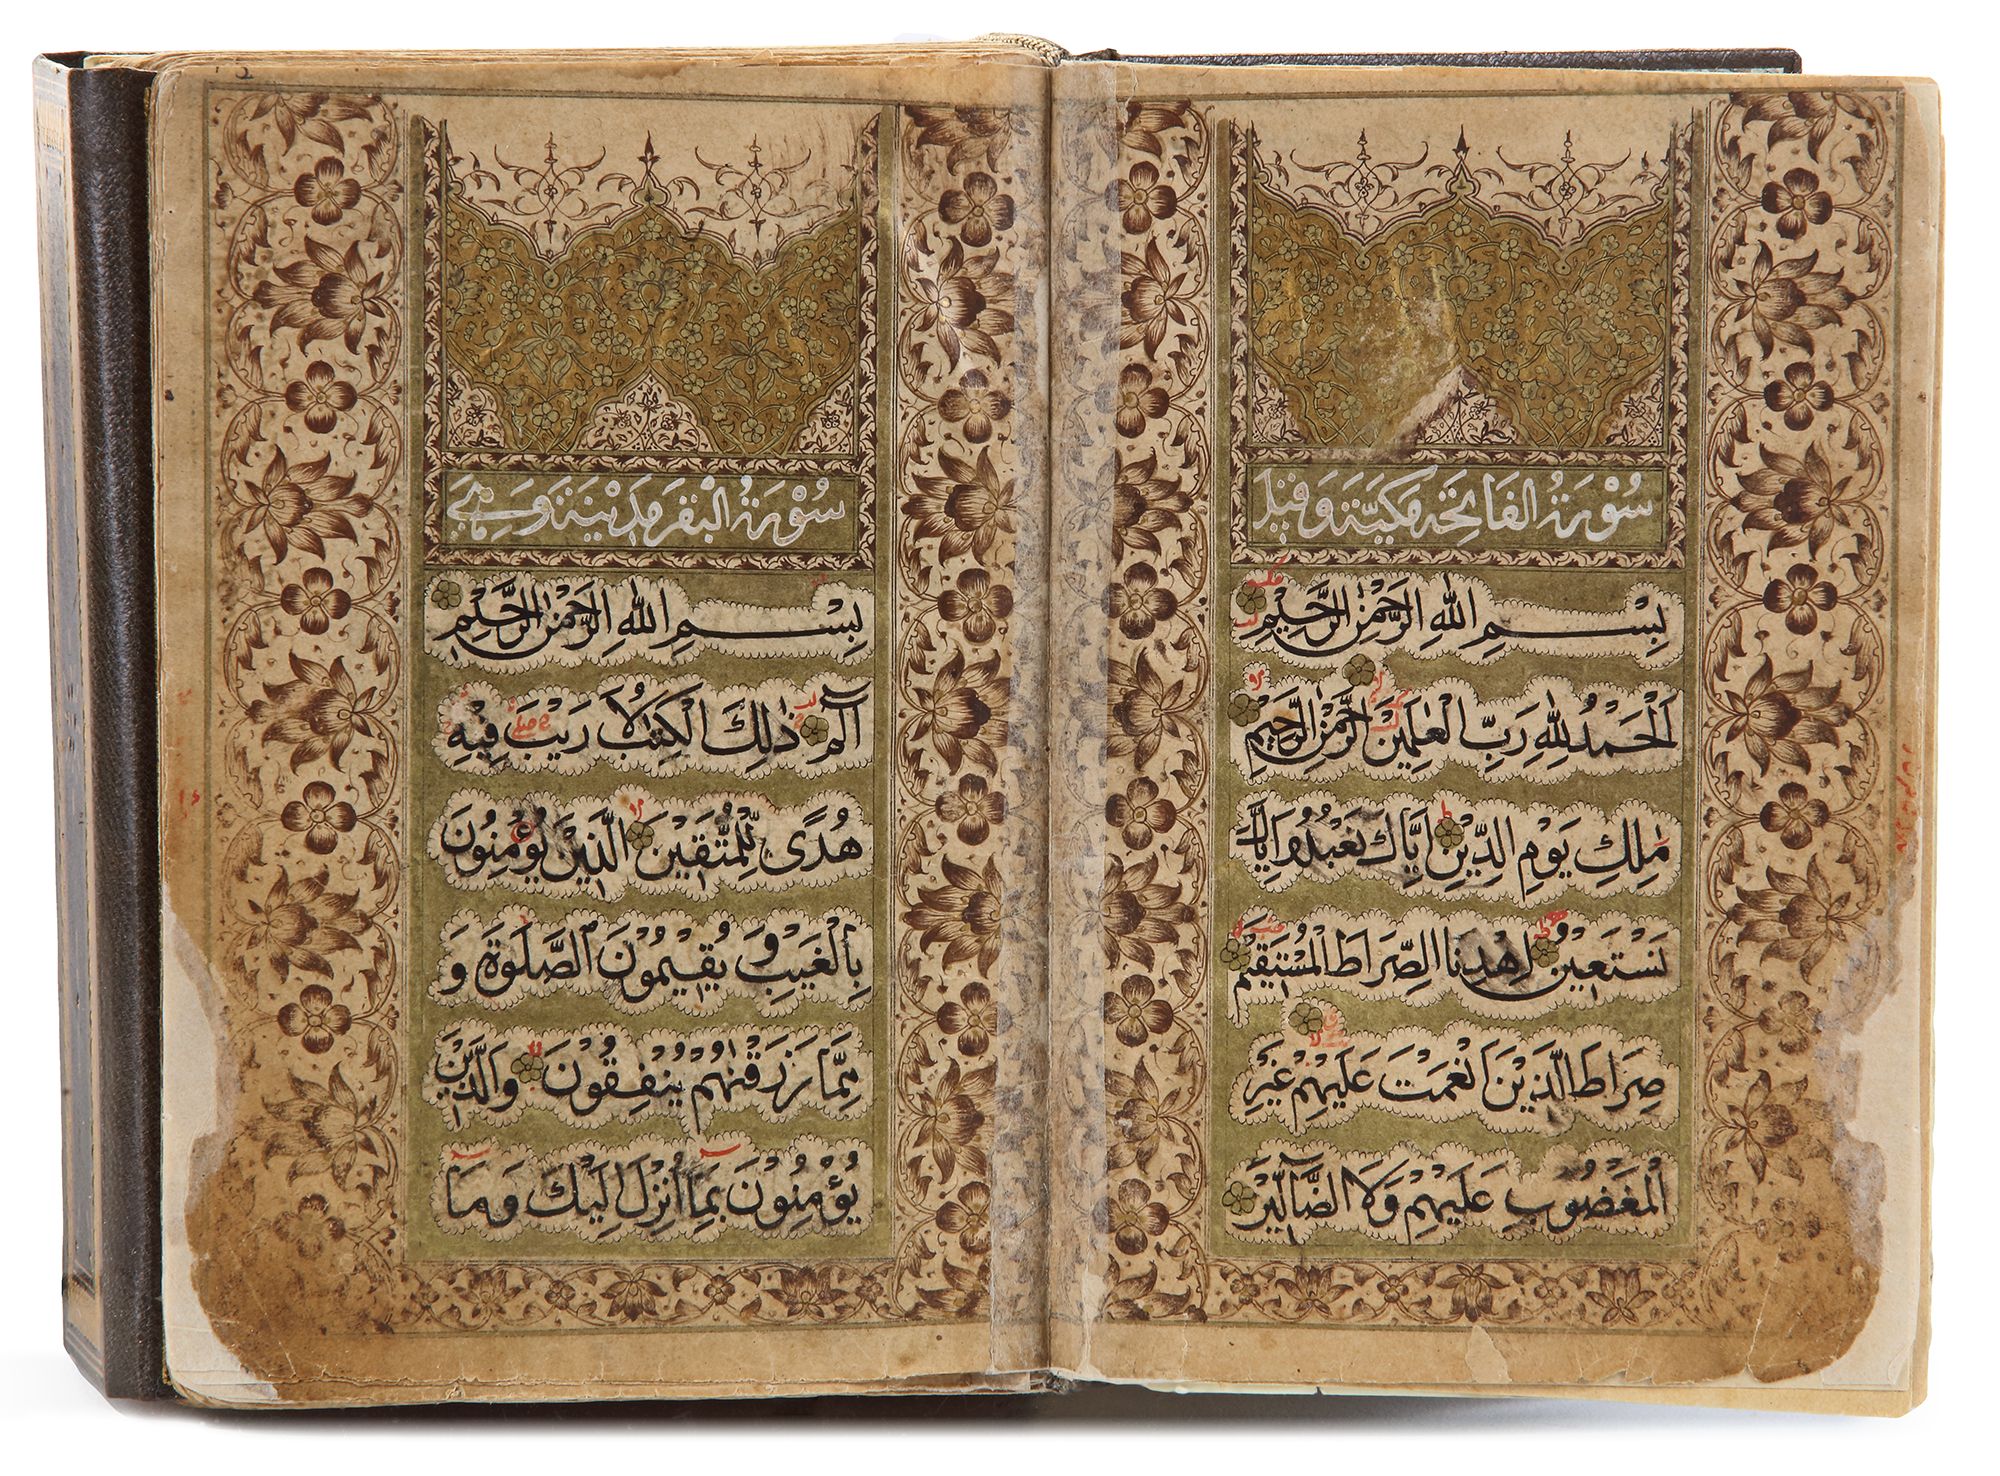 سُوْرَةُ الفَاتِحَه مَكِيَّة وَ
بِسْمِ اللهِ الرَّحْمٰنِ الرَّحِيْمِ
اَلْحَمْدُ لِلّٰهِ رَبِّ الْعٰلَمِيْنَ الرَّحْمٰنِ الرَّحِيْمِ
مٰلِكِ يَوْمِ الدِّيْنِ اِيَّاكَ نَعْبُدُ وَاِيَّاكَ
نَسْتَعِيْنُ اِهْدِنَا الصِّرَاطَ الْمُسْتَقِيْمَ
صِرَاطَ الَّذِيْنَ اَنْعَمْتَ عَلَيْهِمْ غَيْرِ
الْمَغْضُوْبِ عَلَيْهِمْ وَلَا الضَّآلِّيْنَ
سُوْرَةُ الْبَقَر مَدَنِيَّة وَ
بِسْمِ اللهِ الرَّحْمٰنِ الرَّحِيْمِ
الٓمٓ ذٰلِكَ الْكِتٰبُ لَا رَيْبَ فِيْهِ
هُدًى لِّلْمُتَّقِيْنَ الَّذِيْنَ يُؤْمِنُوْنَ
بِالْغَيْبِ وَ يُقِيْمُوْنَ الصَّلٰوةَ وَ
مِمَّا رَزَقْنٰهُمْ يُنْفِقُوْنَ وَالَّذِيْنَ
يُؤْمِنُوْنَ بِمَآ اُنْزِلَ اِلَيْكَ وَمَآ